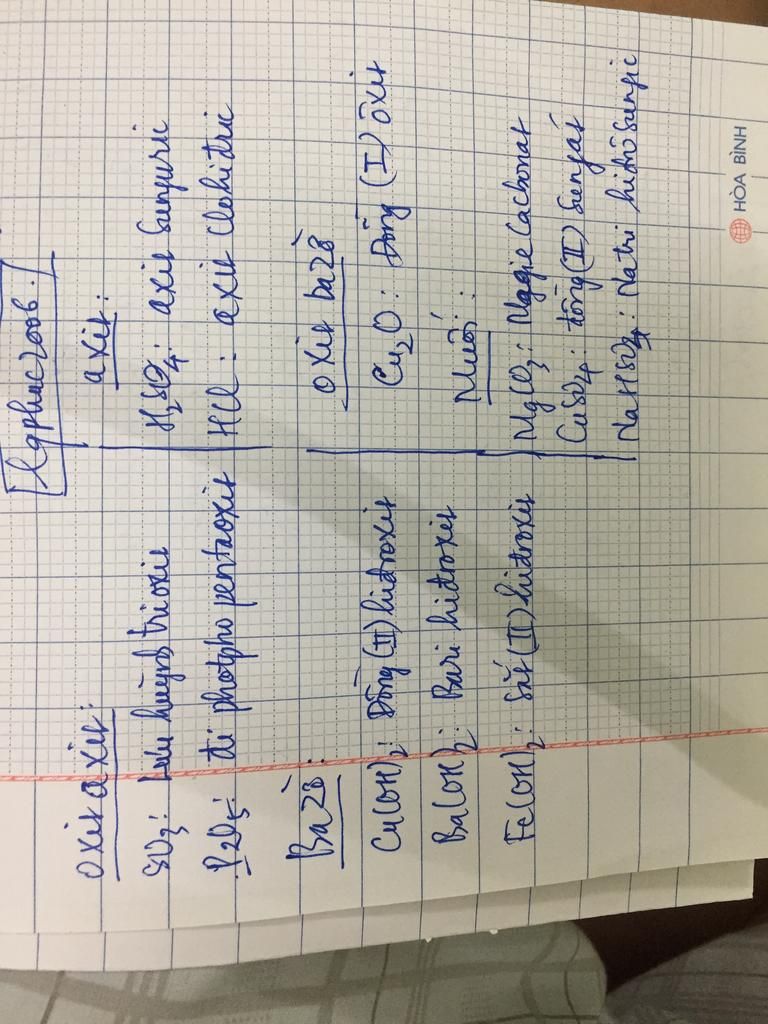 lgphuc2006.
oxit axit:
SO3: Lưu huỳnh trioxit
P2O5: đi photpho pentaoxit
axit:
H2SO4: axit Sunfuric
HCl: axit Clohiđric
Bazơ:
Cu(OH)2: Đồng (II) hiđroxit
Ba(OH)2: Bari hiđroxit
Fe(OH)2: Sắt (II) hiđroxit
oxit bazơ
Cu2O: Đồng (I) ôxit
Muối:
MgCO3: Magie Cacbonat
CuSO4: đồng (II) Sunfat
NaHSO4: Natri hiđrôsunfic
HÒA BÌNH